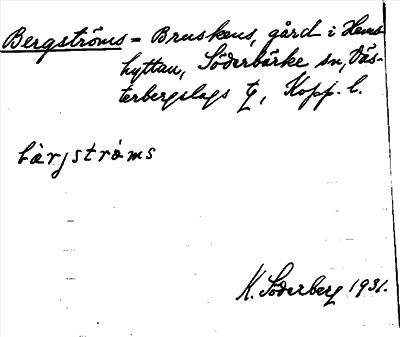 Bergströms = Bruskens, gård i Hems-
hyttan, Söderbärke sn, Väs-
terbergslags tg, Kopp. l.
bærjströms
K. Söderberg 1931.